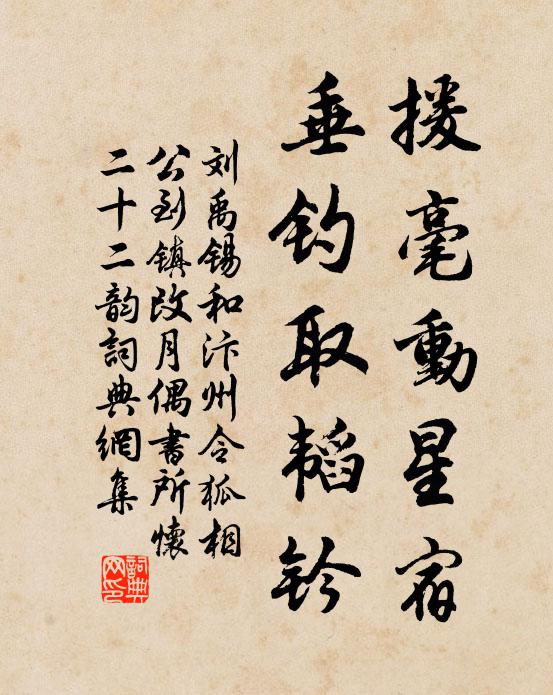 援毫動星宿
垂钓取韬钤
刘禹锡和汴州令狐相
公到镇改月偶書所懷
二十二韵詞典網集
詞典网印